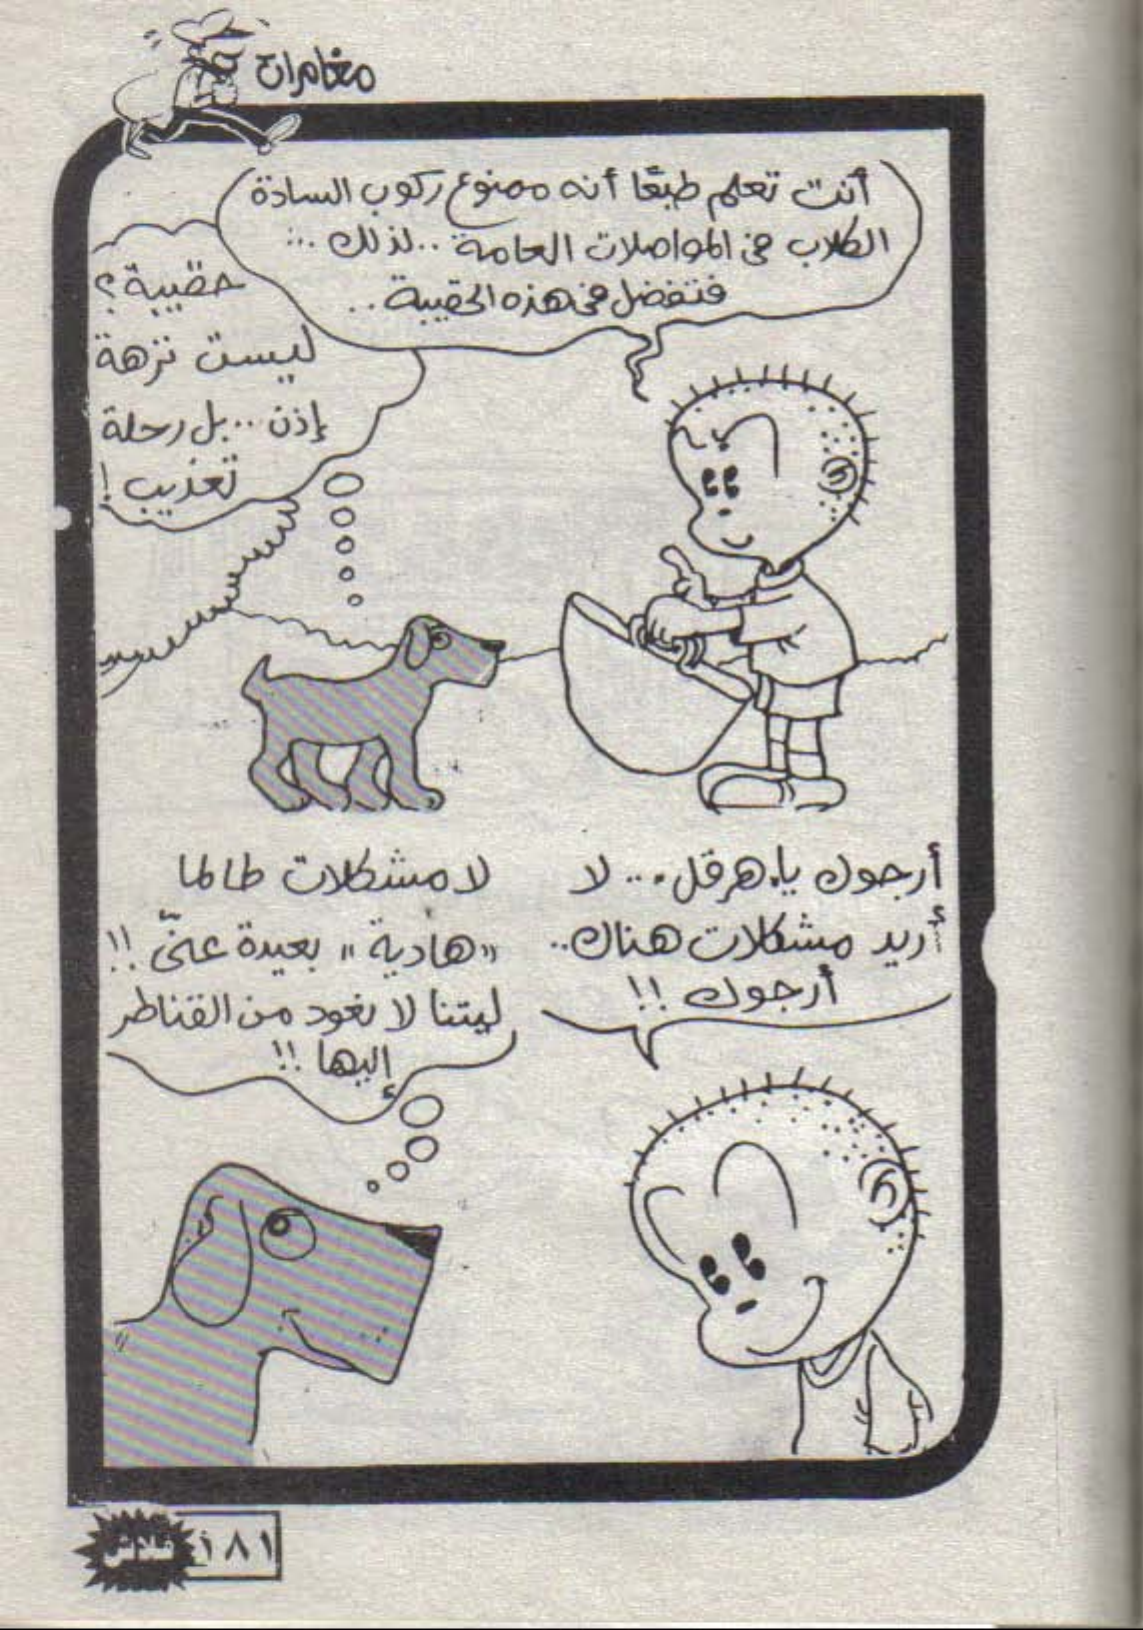 مغامرات
أنت تعلم طبعًا أنه ممنوع ركوب السادة
الكلاب في المواصلات العامة ..لذلك ...
فتفضل في هذه الحقيبة ..
حقيبة؟
ليست نزهة
إذن ..بل رحلة
تعذيب!
أرجوك يا هرقل... لا
أريد مشكلات هناك..
أرجوك !!
لا مشكلات طالما
«هادية» بعيدة عنّي !!
ليتنا لا نعود من القناطر
إليها !!
فلاش
١٨١